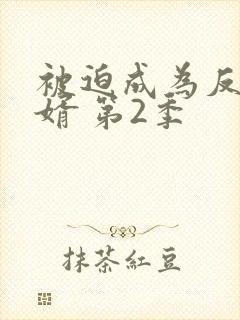 被迫成为反
婿 第2季
抹茶紅豆